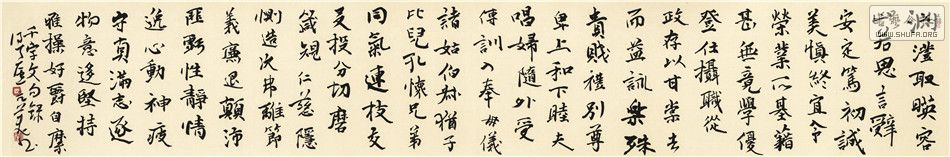 淵澄取暎容
止若思言辭
安定篤初誠
美慎終宜令
榮業所基籍
甚無竟學優
登仕攝職從
政存以甘棠去
而益詠樂殊
貴賤禮別尊
卑上和下睦夫
唱婦隨外受
傅訓入奉母儀
諸姑伯叔猶子
比兒孔懷兄弟
同氣連枝交
友投分切磨
箴規仁慈隱
惻造次弗離節
義廉退顛沛
匪虧性靜情
逸心動神疲
守真滿志逐
物意移堅持
雅操好爵自縻
千字文句錄
WWW.SHUFA.ORG